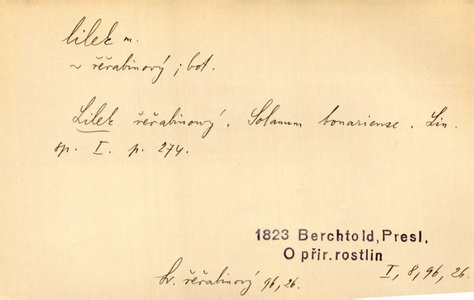 lilek m.
~ řeřabinový ; bot.
Lilek řeřabinový. Solanum bonariense. Lin.
sp. I. p. 274.
1823 Berchtold, Presl,
O přir. rostlin
I, 8, 96, 26.
sv. řeřabinový 96, 26.